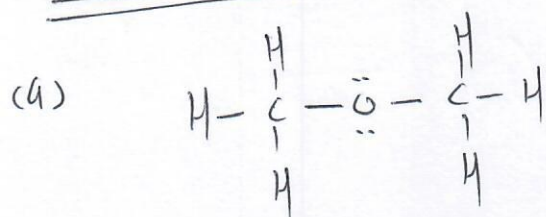 (a)
H H
H - C - Ö - C - H
H H